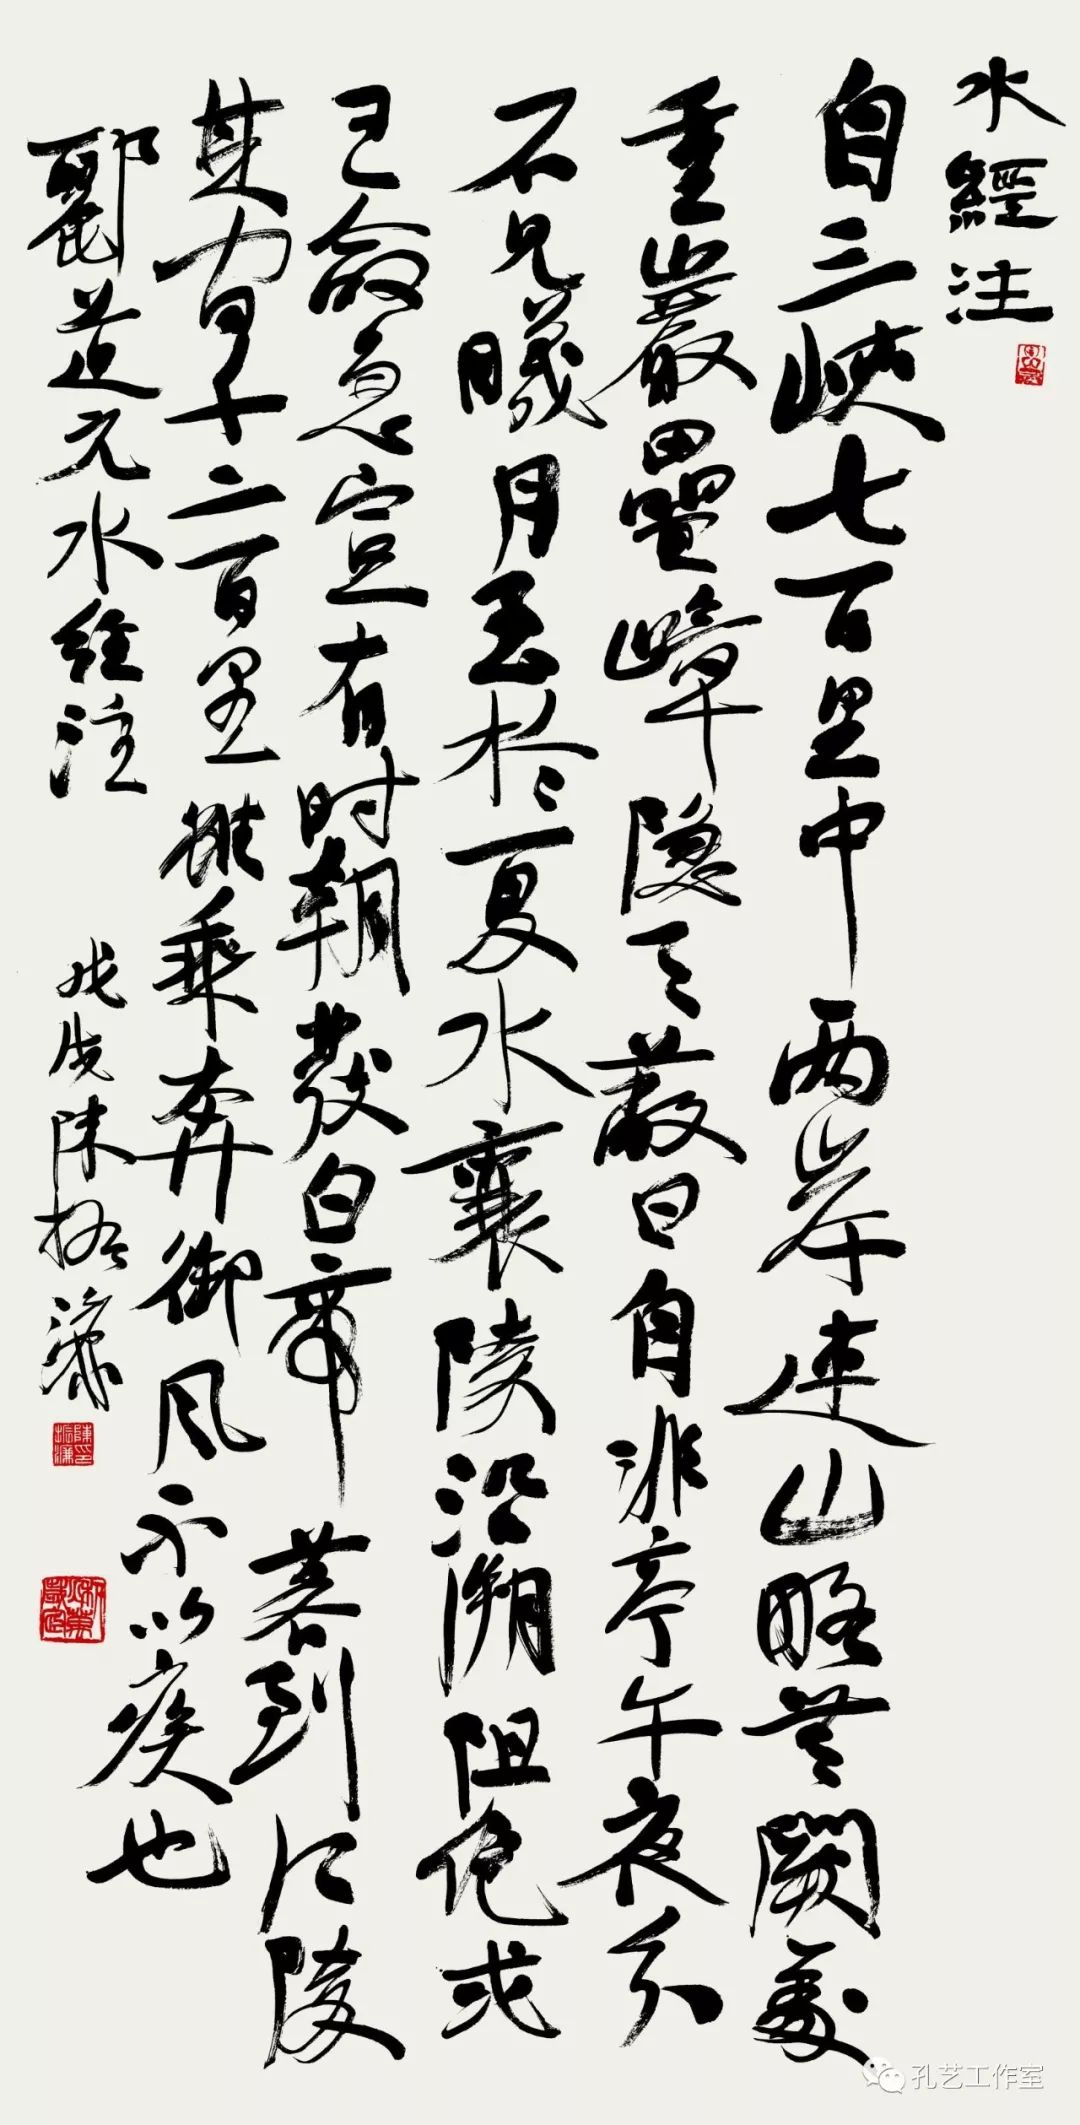 水經注
自三峽七百里中两岸連山略無闕處
重巖疊嶂隱天蔽日自非亭午夜分
不見曦月至於夏水襄陵沿溯阻絕或
王命急宣有时朝發白帝暮到江陵
其间千二百里雖乘奔御风不以疾也
酈道元水经注 戊戌陳振濂
孔艺工作室